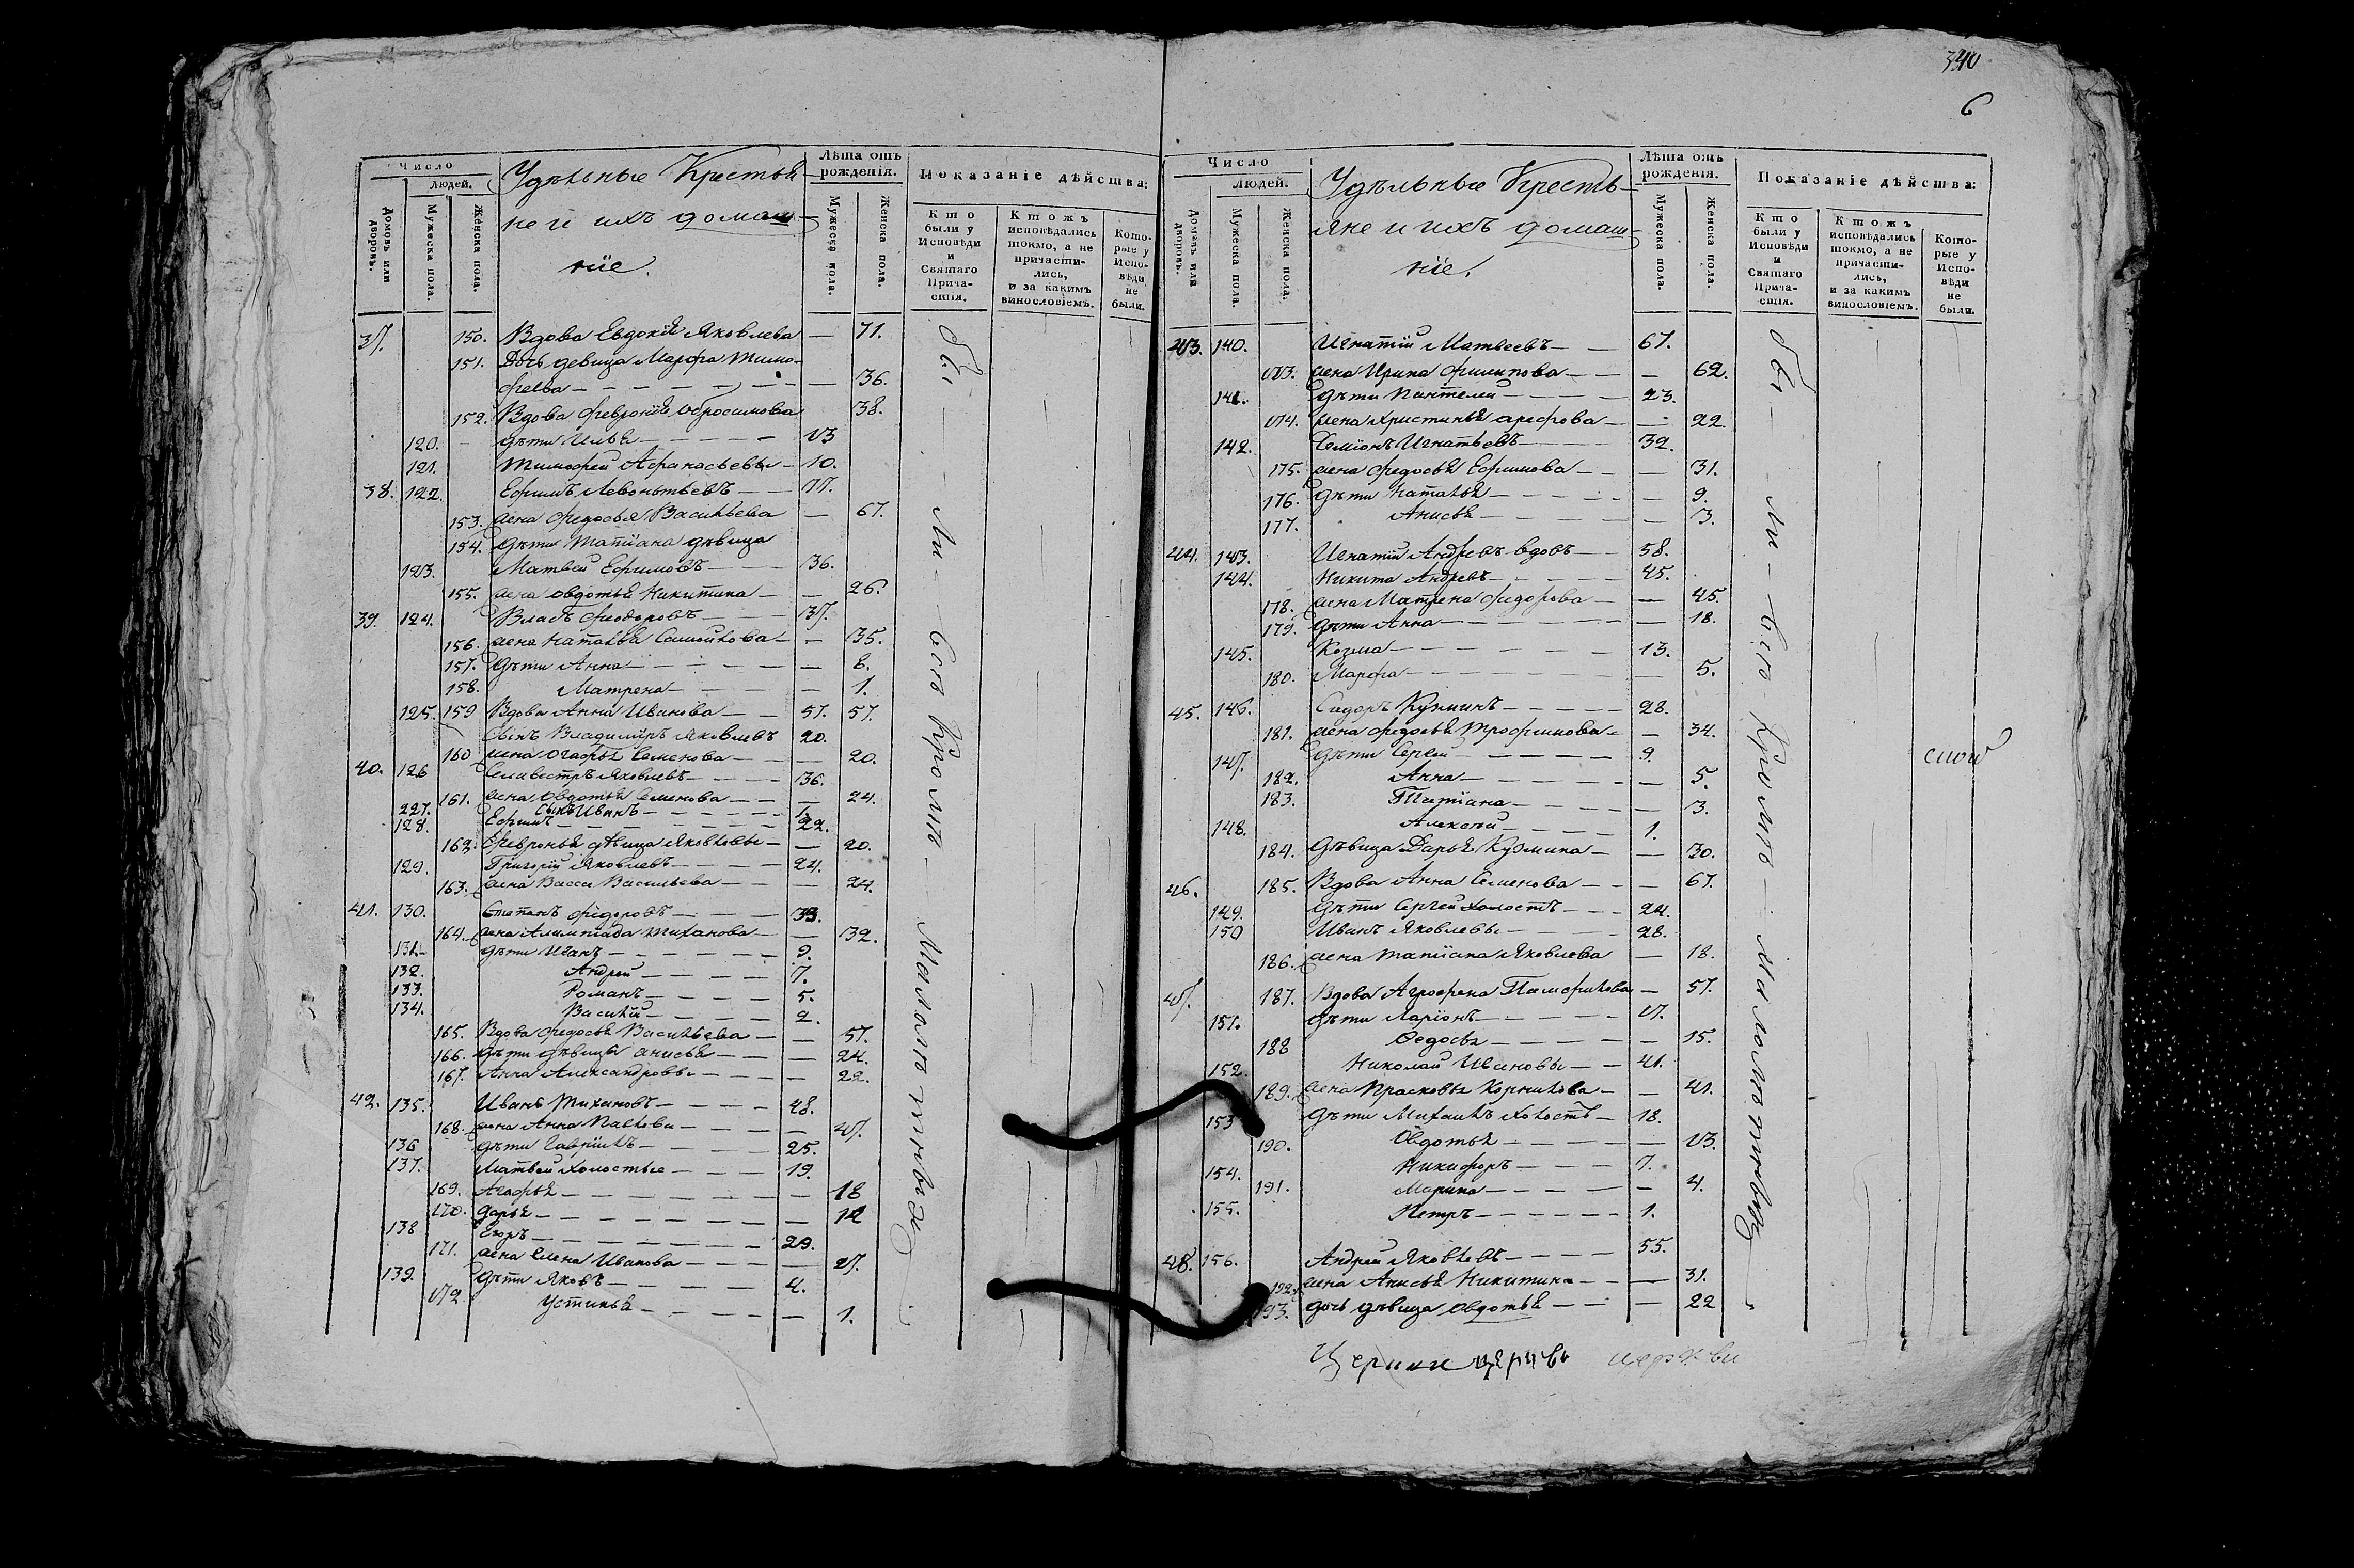 340
6
Число
Людей.
Домовъ или дворовъ.
Мужеска пола.
Женска пола.
Удѣльные Крестья-
не и ихъ домаш-
ніе.
Лѣта отъ рожденія.
Мужеска пола.
Женска пола.
Показаніе дѣйства:
Кто были у Исповѣди и Святаго Прича-стія.
Ктожъ исповѣдались токмо, а не причасти-лись, и за какимъ винословіемъ.
Кото-рые у Испо-вѣди не были.
37. 150. Вдова Евдокія Яковлева — 71.
151. Дочь девица Марфа Тимо-
феева — 36.
152. Вдова Февронія Обросимова 38.
120. дѣти Илья — 13
121. Тимофей Афанасьевы — 10.
38. 122. Ефимъ Левонтьевъ — 77.
153. жена Федосья Васильева — 67.
154. дѣти Татіана дѣвица
123. Матвей Ефимовъ — 36.
155. жена Овдотья Никитина — 26.
39. 124. Власъ Феодоровъ — 37.
156. жена Наталья Самойлова — 35.
157. дѣти Анна — 6.
158. Матрена — 1.
125. 159 Вдова Анна Иванова — 57. 57.
Сынъ Владимиръ Яковлевъ 20.
160 жена Огафья Семенова — 20.
40. 126 Селивестръ Яковлевъ — 36.
161. жена Овдотья Семенова — 24.
227. Сынъ Иванъ — 1.
128. Ефимъ — 22.
162. Февронья дѣвица Яковлевы — 20.
129. Григорій Яковлевъ — 24.
163. жена Васса Васильева — 24.
41. 130. Степанъ Федоровъ — 33.
164. жена Алимпіада Тиханова — 32.
131. дѣти Иванъ — 9.
132. Андрей — 7.
133. Романъ — 5.
134. Василій — 2.
165. Вдова Федосья Васильева — 57.
166. дѣти дѣвицы Анисья — 24.
167. Анна Александровы — 22.
42. 135. Иванъ Тихановъ — 48.
168. жена Анна Павлова — 47.
136 дѣти Гаврилъ — 25.
137. Матвей холостые — 19.
169. Агафья — 18
170. Дарья — 12
138 Егоръ — 29.
171. жена Елена Иванова — 27.
139. дѣти Яковъ — 4.
172 Устинья — 1.
бы — ли — всѣ кромѣ — малолѣтныхъ
Число
Людей.
Домовъ или дворовъ.
Мужеска пола.
Женска пола.
Удѣльные Кресть-
яне и ихъ домаш-
ніе.
Лѣта отъ рожденія.
Мужеска пола.
Женска пола.
Показаніе дѣйства:
Кто были у Исповѣди и Святаго Прича-стія.
Ктожъ исповѣдались токмо, а не причасти-лись, и за какимъ винословіемъ.
Кото-рые у Испо-вѣди не были.
43. 140. Игнатій Матвеевъ — 67.
173. жена Ирина Филипова — 62.
141. дѣти Пантелей — 23.
174. жена Христинья Арефова — 22.
142. Семіонъ Игнатьевъ — 32.
175. жена Федосья Ефимова — 31.
176. дѣти Наталья — 9.
177. Анисья — 3.
44. 143. Игнатій Андревъ вдовъ — 58.
144. Никита Андревъ — 45.
178. жена Матрена Федорова — 45.
179. дѣти Анна — 18.
145. Козма — 13.
180. Марфа — 5.
45. 146. Сидоръ Кузминъ — 28.
181. жена Федосья Трофимова — 34.
147. дѣти Сергей — 9.
182. Анна — 5.
183. Татіана — 3.
148. Алексѣй — 1.
184. дѣвица Дарья Кузмина — 30.
46. 185. Вдова Анна Семенова — 67.
149. дѣти Сергей холостъ — 24.
150 Иванъ Яковлевы — 28.
186. жена Татіана Яковлева — 18.
47. 187. Вдова Агрофена Памфилова — 57.
151. дѣти Ларіонъ — 17.
188 Федосья — 15.
152. Николай Ивановы — 41.
189. жена Прасковья Корнилова — 41.
153 дѣти Михаилъ холостъ — 18.
190. Овдотья — 13.
154. Никифоръ — 7.
191. Марина — 4.
155. Петръ — 1.
48. 156. Андрей Яковлевъ — 55.
192. жена Анисья Никитина — 31.
93. дочь дѣвица Овдотья — 22
бы — ли — всѣ кромѣ — малолѣтныхъ
церкви